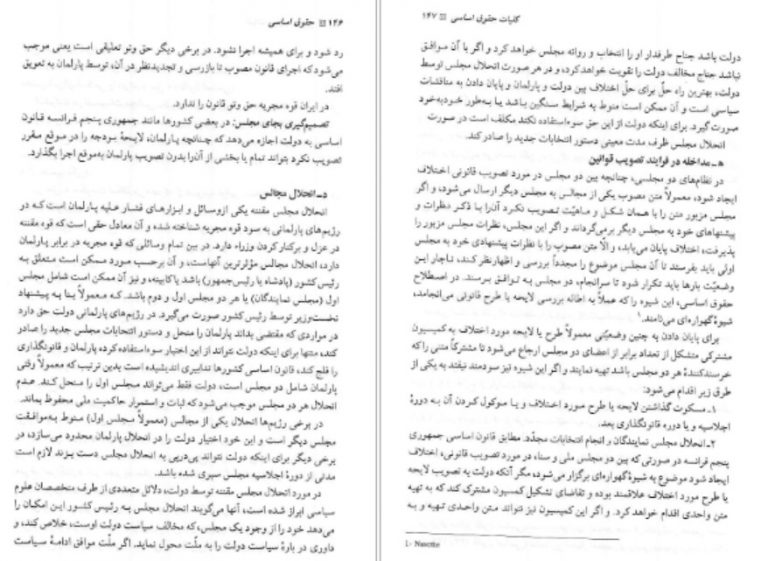 ۱۴۶ حقوق اساسی
رد شود و برای همیشه اجرا نشود. در برخی دیگر حق وتو تعلیقی است یعنی موجب
می‌شود که اجرای قانون مصوب تا بازرسی و تجدیدنظر در آن، توسط پارلمان به تعویق
افتد.
در ایران قوه مجریه حق وتو قانون را ندارد.
تصمیم‌گیری بجای مجلس: در بعضی کشورها مانند جمهوری پنجم فرانسه قانون
اساسی به دولت اجازه می‌دهد که چنانچه پارلمان، لایحهٔ بودجه را در موقع مقرر
تصویب نکرد بتواند تمام یا بخشی از آن‌را بدون تصویب پارلمان به‌موقع اجرا بگذارد.
د ـ انحلال مجالس
انحلال مجلس مقننه یکی از وسائل و ابزارهای فشار علیه پارلمان است که در
رژیم‌های پارلمانی به سود قوه مجریه شناخته شده و آن معادل حقی است که قوه مقننه
در عزل و برکنار کردن وزراء دارد. در بین تمام وسائلی که قوه مجریه در برابر پارلمان
دارد، انحلال مجالس مؤثرترین آنهاست، و آن برحسب مورد ممکن است متعلق به
رئیس کشور (پادشاه یا رئیس‌جمهور) باشد یا کابینه، و نیز آن ممکن است شامل مجلس
اول (مجلس نمایندگان) یا هر دو مجلس اول و دوم باشد. که معمولاً بنا به پیشنهاد
نخست‌وزیر توسط رئیس کشور صورت می‌گیرد. در رژیم‌های پارلمانی دولت حق دارد
در مواردی که مقتضی بداند پارلمان را منحل و دستور انتخابات مجلس جدید را صادر
کند، منتها برای اینکه دولت نتواند از این اختیار سوءاستفاده کرده، پارلمان و قانونگذاری
را فلج کند، قانون اساسی کشورها تدابیری اندیشیده است بدین ترتیب که معمولاً وقتی
پارلمان شامل دو مجلس است، دولت فقط می‌تواند مجلس اول را منحل کند. عدم
انحلال هر دو مجلس موجب می‌شود که ثبات و استمرار حاکمیت ملی محفوظ بماند.
در برخی رژیم‌ها انحلال یکی از مجالس (معمولاً مجلس اول) منوط به موافقت
مجلس دیگر است و این خود اختیار دولت را در انحلال پارلمان محدود می‌سازد، در
برخی دیگر برای اینکه دولت نتواند پی‌درپی به انحلال مجلس دست بزند لازم است
مدتی از دورهٔ اجلاسیه مجلس سپری شده باشد.
در مورد انحلال مجلس مقننه توسط دولت، دلائل متعددی از طرف متخصصان علوم
سیاسی ابراز شده است، آنها می‌گویند انحلال مجلس به رئیس کشور این امکان را
می‌دهد خود را از وجود یک مجلس، که مخالف سیاست دولت اوست، خلاص کند، و
داوری در بارهٔ سیاست دولت را به ملت محول نماید. اگر ملت موافق ادامهٔ سیاست
کلیات حقوق اساسی ۱۴۷
دولت باشد جناح طرفدار او را انتخاب و روانه مجلس خواهد کرد و اگر با آن موافق
نباشد جناح مخالف دولت را تقویت خواهد کرد، و در هر صورت انحلال مجلس توسط
دولت، بهترین راه حل برای حل اختلاف بین دولت و پارلمان و پایان دادن به مناقشات
سیاسی است و آن ممکن است منوط به شرایط سنگین باشد یا به‌طور خودبه‌خود
صورت گیرد. برای اینکه دولت از این حق سوءاستفاده نکند مکلف است در صورت
انحلال مجلس ظرف مدت معینی دستور انتخابات جدید را صادر کند.
هـ ـ مداخله در فرایند تصویب قوانین
در نظام‌های دو مجلسی، چنانچه بین دو مجلس در مورد تصویب قانونی اختلاف
ایجاد شود، معمولاً متن مصوب یکی از مجالس به مجلس دیگر ارسال می‌شود، و اگر
مجلس مزبور متن را با همان شکل و ماهیت تصویب نکرد آن‌را با ذکر نظرات و
پیشنهادهای خود به مجلس دیگر برمی‌گرداند و اگر این مجلس، نظرات مجلس مزبور را
پذیرفت، اختلاف پایان می‌یابد، و الّا متن مصوب را با نظرات پیشنهادی خود به مجلس
اولی باید بفرستد تا آن مجلس موضوع را مجدداً بررسی و اظهارنظر کند، ناچار این
وضعیت بارها باید تکرار شود تا سرانجام، دو مجلس به توافق برسند. در اصطلاح
حقوق اساسی، این شیوه را که عملاً به اطاله بررسی لایحه یا طرح قانونی می‌انجامد،
شیوهٔ گهواره‌ای می‌نامند.۱
برای پایان دادن به چنین وضعیتی معمولاً طرح یا لایحه مورد اختلاف به کمیسیون
مشترکی متشکل از تعداد برابر از اعضای دو مجلس ارجاع می‌شود تا مشترکاً متنی را که
خرسندکنندهٔ هر دو مجلس باشد تهیه نمایند و اگر این شیوه نیز سودمند نیفتد به یکی از
طرق زیر اقدام می‌شود:
۱ـ مسکوت گذاشتن لایحه یا طرح مورد اختلاف و یا موکول کردن آن به دورهٔ
اجلاسیه و یا دوره قانونگذاری بعد.
۲ـ انحلال مجلس نمایندگان و انجام انتخابات مجدّد. مطابق قانون اساسی جمهوری
پنجم فرانسه در صورتی که بین دو مجلس ملی و سناء در مورد تصویب قانونی، اختلاف
ایجاد شود موضوع به شیوهٔ گهواره‌ای برگزار می‌شود، مگر آنکه دولت به تصویب لایحه
یا طرح مورد اختلاف علاقمند بوده و تقاضای تشکیل کمسیون مشترک کند که به تهیه
متن واحدی اقدام خواهد کرد. و اگر این کمیسیون نیز نتواند متن واحدی تهیه و به
1- Navette